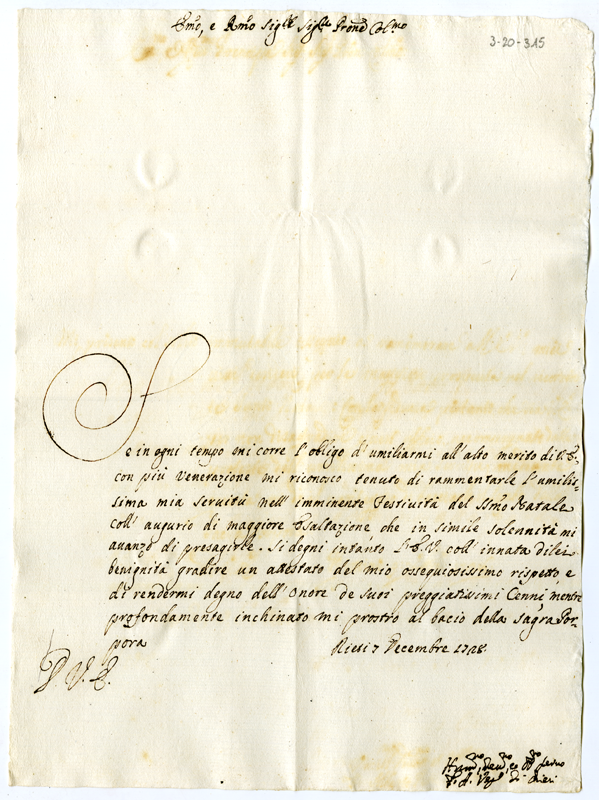 Emo, e Rmo Sigre Sigre Prone Colmo
3-20-315
Se in ogni tempo mi corre l'obligo d'umiliarmi all'alto merito di V.E,
con più Venerazione mi riconosco tenuto di rammentarle l'umilis=
sima mia servitù nell'imminente Festività del SSmo Natale
coll'augurio di maggiore Esaltazione che in simile solennità mi
avanzo di presagirle. Si degni intanto L'E.V. coll'innata di lei
benignità gradire un attestato del mio ossequiosissimo rispetto, e
di rendermi degno dell'Onore de suoi preggiatissimi Cenni mentre
profondamente inchinato mi prostro al bacio della sagra Por=
pora
Rieti 7 Decembre 1728
D V. E.
Humo, Devmo, ed Obmo servo
di Rieti